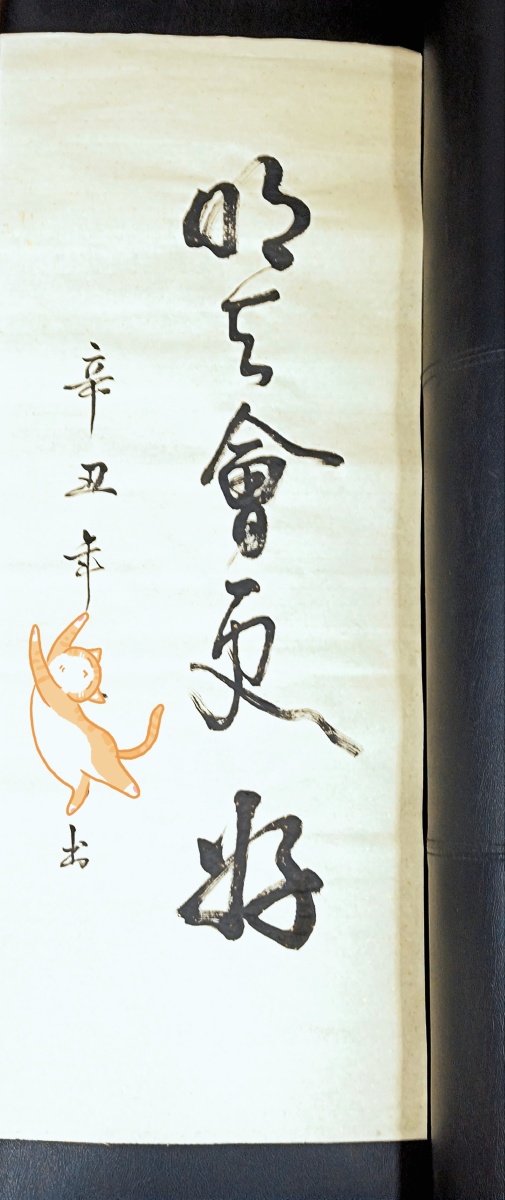 明天會更好
辛丑年
书